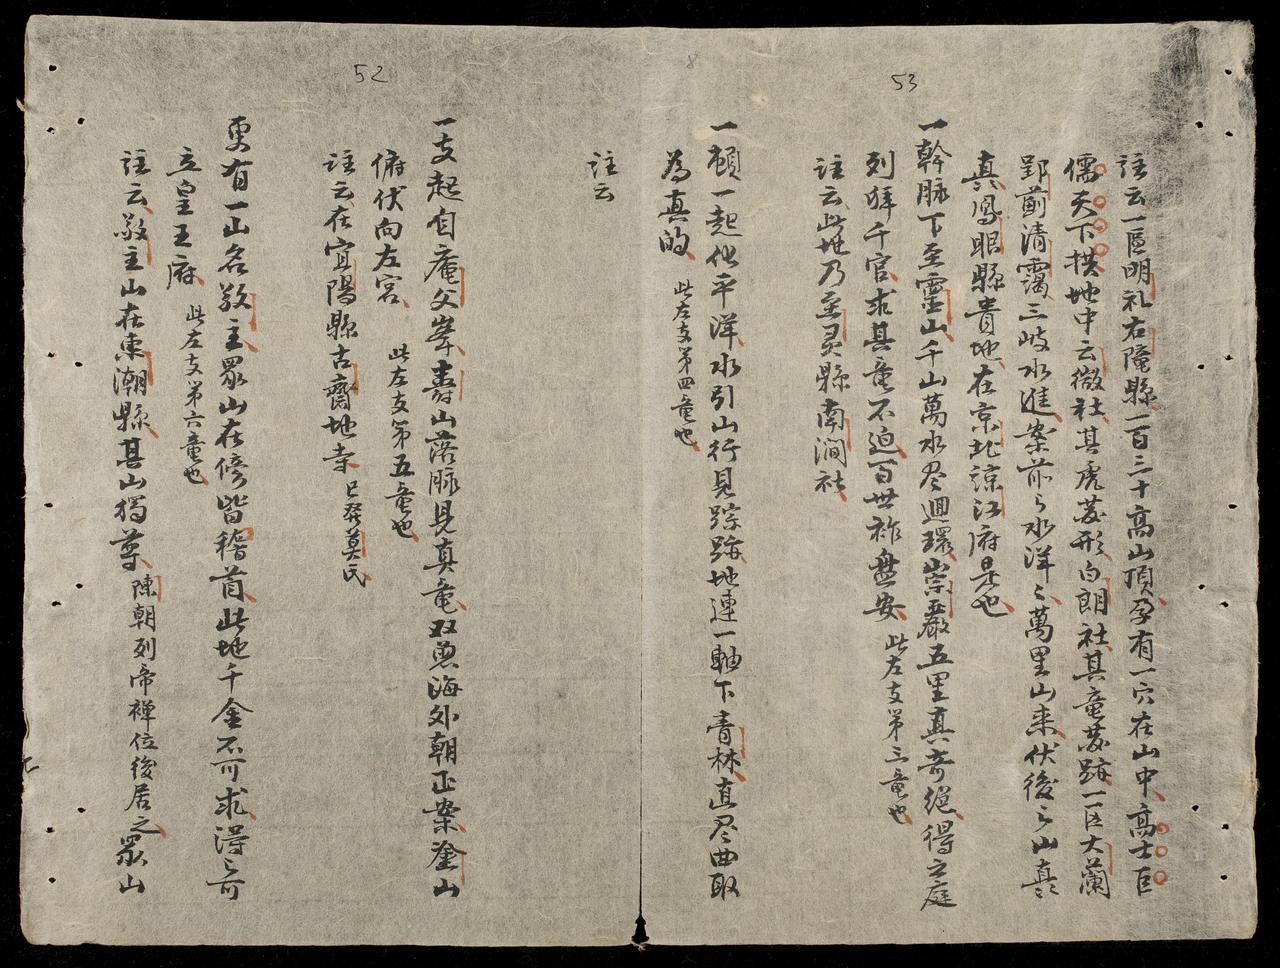 53
註云一區明礼右隴縣一百三十高山頂孕有一穴在山中高士巨
儒天下拱地中云微社其虎茇形白朗社其竜茇跡一區大蘭
郢薊清靄三岐水進案前之水洋々萬里山来伏後之山真
真鳳眼縣貴地在京北諒江府是也
一幹脉下至靈山千山萬水尽週環崇嚴五里真奇絕得之庭
列拜千官求其竜不迫百世祚盘安 此左支第三竜也
註云此地乃至灵縣南澗社
一頓一起化平洋水引山行見踪跡地連一軸下青林直尽曲取
為真的 此左支第四竜也
8
註云
52
一支起自庵父峯壽山落脉見真竜双 海外朝正案塗山
俯伏向左宮 此左支第五竜也
註云在宜陽縣古齋地寺 已發莫氏
更有一山名敬主眾山在傍皆稽首此地千金不可求得之可
立皇王府 此左支第六竜也
註云敬主山在東潮縣其山獨尊 陳朝列帝禅位後居之眾山